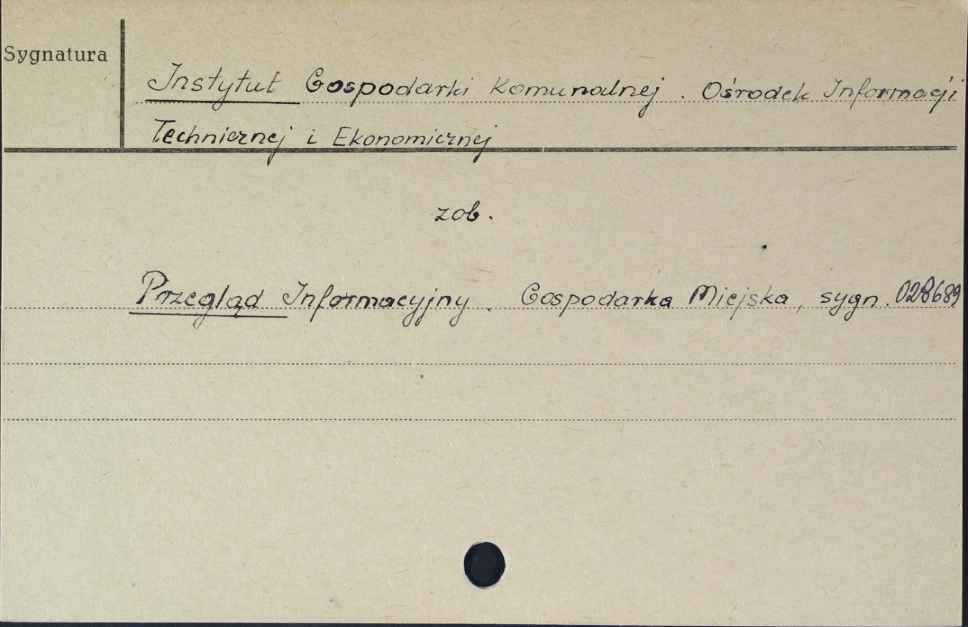 Sygnatura
Instytut Gospodarki Komunalnej. Ośrodek Informacji
Technicznej i Ekonomicznej
zob.
Przegląd Informacyjny. Gospodarka Miejska, sygn. 028689